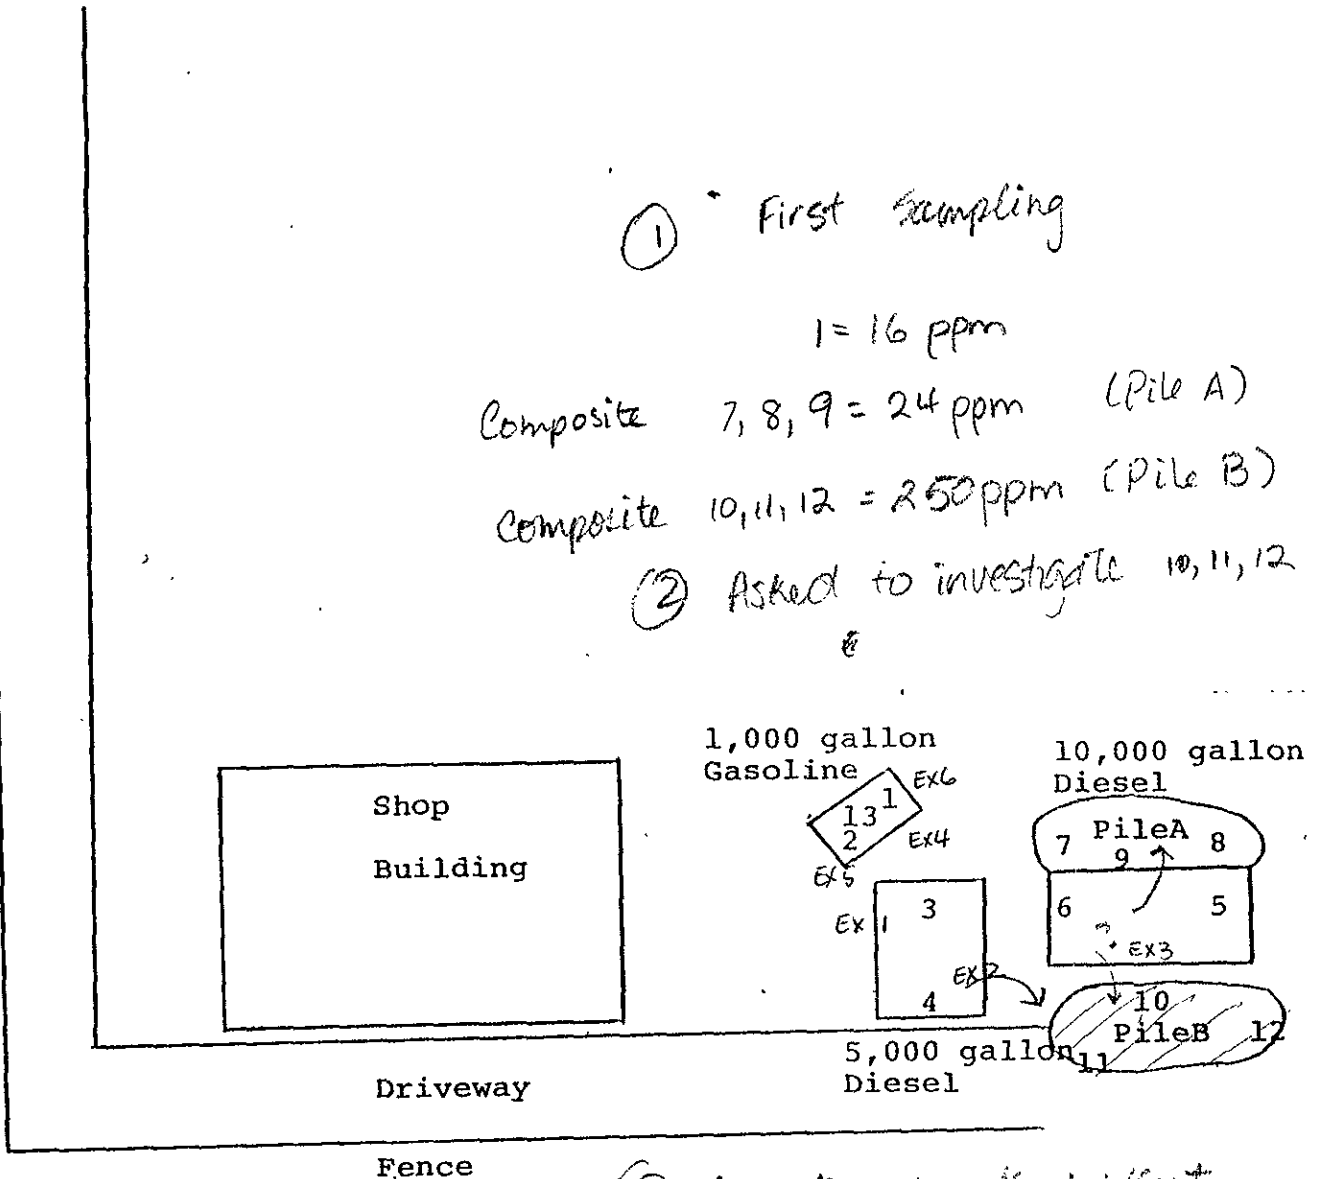 ① First Sampling
1 = 16 ppm
Composite 7, 8, 9 = 24 ppm (Pile A)
Composite 10, 11, 12 = 250 ppm (Pile B)
② Asked to investigate 10, 11, 12
1,000 gallon
Gasoline
10,000 gallon
Diesel
Shop
Building
Ex6
1
13
2
Ex4
Ex5
7 PileA 8
9
6 5
Ex3
Ex 1
3
Ex 2
4
10
PileB 12
11
5,000 gallon
Diesel
Driveway
Fence